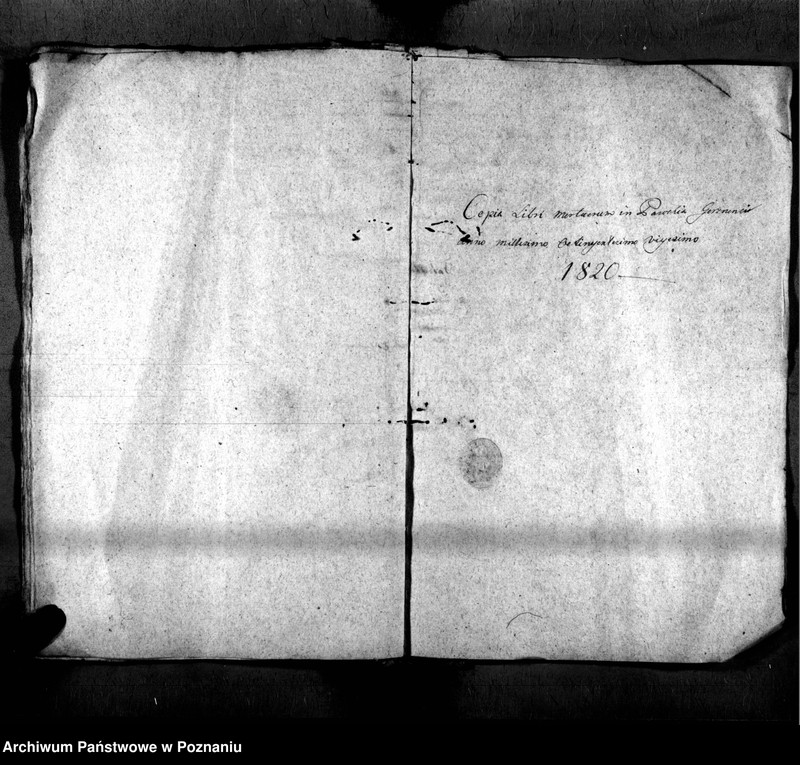 Copia Libri Mortuorum in Parochia
anno millesimo vigesimo
1820
Archiwum Państwowe w Poznaniu